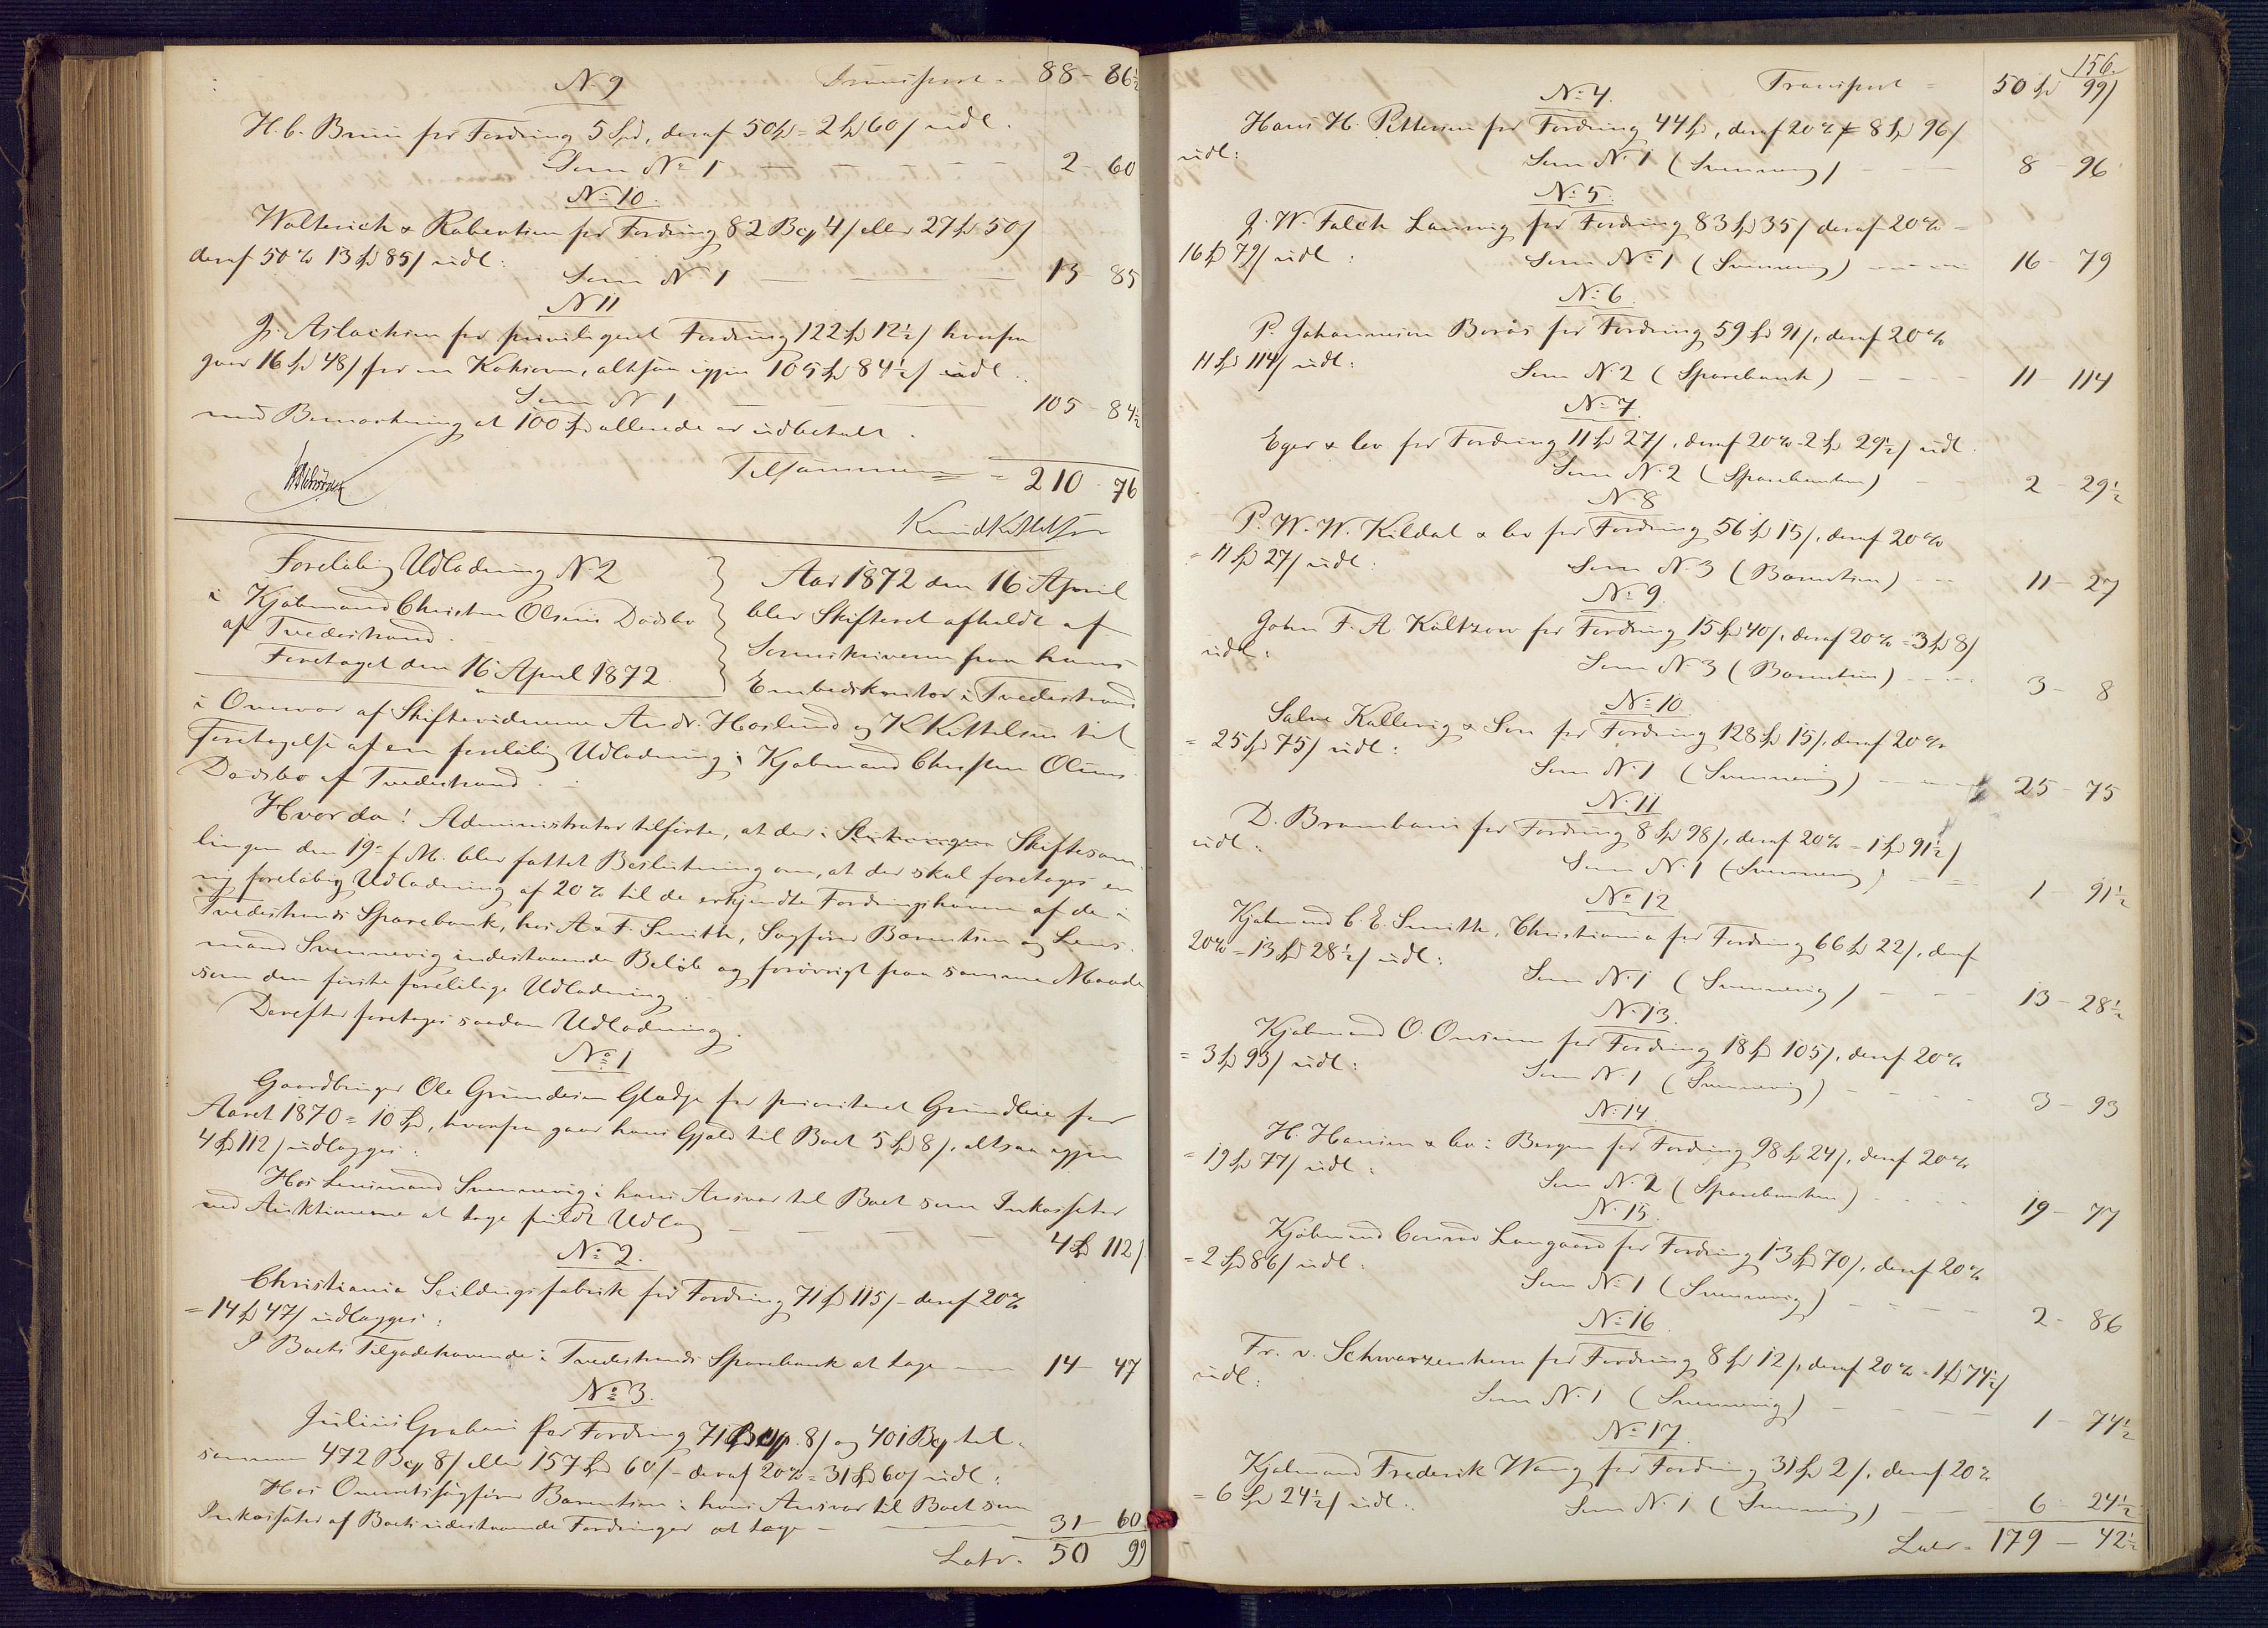 Transport = 88 - 86½
N: 9
H. C. Bruun for Fordring 5 Spd, deraf 50 % = 2 Spd 60 / udl.
Som No 1 — 2 - 60
N: 10.
Wolterich & Robertsen for Fordring 82 Bcp 4 / eller 27 Spd 50 /
deraf 50 % 13 Spd 85 / udl:
Som N 1 — 13 85
N 11
J. Aslachsen for priviligeret Fordring 122 Spd 12½ / hvorfra
gaar 16 Spd 48 / for en Kakkovn, altsaa igjen 105 Spd 84½ / udl.
Som N 1 — 105 - 84½
med Bemærkning at 100 Spd allerede er udbetalt.
Tilsammen = 210 - 76
Knud Kittelsen
Foreløbig Udlodning N 2
i Kjøbmand Christen Olsens Dødsbo
af Tvedestrand.
Foretaget den 16 April 1872.
Aar 1872 den 16 April
blev Skifteret afholdt af
Sorenskriveren paa hans
Embedskontor i Tvedestrand
i Overvær af Skiftevidnerne Andr. Haslund og K Kittelsen til
Foretagelse af en foreløbig Udlodning i Kjøbmand Christen Olsens
Dødsbo af Tvedestrand. -
Hvorda! Administrator tilførte, at der i Skiftesam-
lingen den 19 f. M. blev fattet Beslutning om, at der skal foretages en
ny foreløbig Udlodning af 20 % til de erkjendte Fordringshavere af de i
Tvedestrands Sparebank, hos A & F. Smith, Sagfører Barentsen og Lens-
mand Svennevig indestaaende Beløb og forøvrigt paa samme Maade
som den første foreløbige Udlodning.
Derefter foretages saadan Udlodning.
No 1
Gaardbruger Ole Gundersen Gladje for prioriteret Grundleie for
Aaret 1870 = 10 Spd, hvorfra gaar hans Gjæld til Boet 5 Spd 8 /, altsaa igjen
4 Spd 112 / udlægges:
Hos Lensmand Svennevig i hans Ansvar til Boet som Inkassator
ved Auktionerne at tage fuldt Udlæg — 4 Spd 112 /
No 2.
Christiania Seildugsfabrik for Fordring 71 Spd 115 / - deraf 20 %
= 14 Spd 47 / udlægges:
I Boets Tilgodehavende i Tvedestrands Sparebank at tage — 14 - 47
No 3.
Julius Graban for Fordring 71 Bcp. 8 / og 401 Bcp til-
sammen 472 Bcp 8 / eller 157 Spd 60 / - deraf 20 % = 31 Spd 60 / udl:
Hos Overretssagfører Barentsen i hans Ansvar til Boet som
Inkassator af Boets udestaaende Fordringer at tage — 31 - 60
Latr. 50 99
156.
Transport = 50 Spd 99 /
No 4.
Hans H. Pettersen for Fordring 44 Spd, deraf 20 % = 8 Spd 96 /
udl:
Som N. 1 (Svennevig) — 8 - 96
No 5.
J. W. Falch Laurvig for Fordring 83 Spd 35 / deraf 20 % =
16 Spd 79 / udl:
Som No 1 (Svennevig) — 16 - 79
No 6.
P. Johannesen Borås for Fordring 59 Spd 91 /, deraf 20 %
11 Spd 114 / udl:
Som N. 2 (Sparebank) — 11 - 114
No 7.
Eger & Co for Fordring 11 Spd 27 /, deraf 20 % = 2 Spd 29½ / udl.
Som N. 2 (Sparebanken) — 2 - 29½
N 8
P. W. W. Kildal & Co for Fordring 56 Spd 15 /, deraf 20 %
= 11 Spd 27 / udl:
Som N. 3 (Barentsen) — 11 - 27
No 9.
John F. A. Koltzow for Fordring 15 Spd 40 /, deraf 20 % = 3 Spd 8 /
udl:
Som N. 3 (Barentsen) — 3 - 8
No 10.
Salve Kallevig & Søn for Fordring 128 Spd 15 /, deraf 20 %
= 25 Spd 75 / udl:
Som N. 1 (Svennevig) — 25 - 75
N. 11
D. Brambani for Fordring 8 Spd 98 /, deraf 20 % = 1 Spd 91½ /
udl:
Som N. 1 (Svennevig) — 1 - 91½
No 12
Kjøbmand C. E. Smith, Christiania for Fordring 66 Spd 22 /, deraf
20 % = 13 Spd 28½ / udl:
Som No 1 (Svennevig) — 13 - 28½
N. 13.
Kjøbmand O. Onsum for Fordring 18 Spd 105 /, deraf 20 %
= 3 Spd 93 / udl:
Som N. 1 (Svennevig) — 3 - 93
No 14.
H. Hansen & Co i Bergen for Fordring 98 Spd 24 /, deraf 20 %
= 19 Spd 77 / udl:
Som No 2 (Sparebanken) — 19 - 77
N. 15.
Kjøbmand Conrad Langaard for Fordring 13 Spd 70 /, deraf 20 %
= 2 Spd 86 / udl:
Som No 1 (Svennevig) — 2 - 86
No 16.
Fr. v. Schwarzenhorn for Fordring 8 Spd 12 /, deraf 20 % = 1 Spd 74½ /
udl:
Som N. 1 (Svennevig) — 1 - 74½
No 17.
Kjøbmand Frederik Wang for Fordring 31 Spd 2 /, deraf 20 %
= 6 Spd 24½ / udl:
Som N. 1 (Svennevig) — 6 - 24½
Latr = 179 - 42½